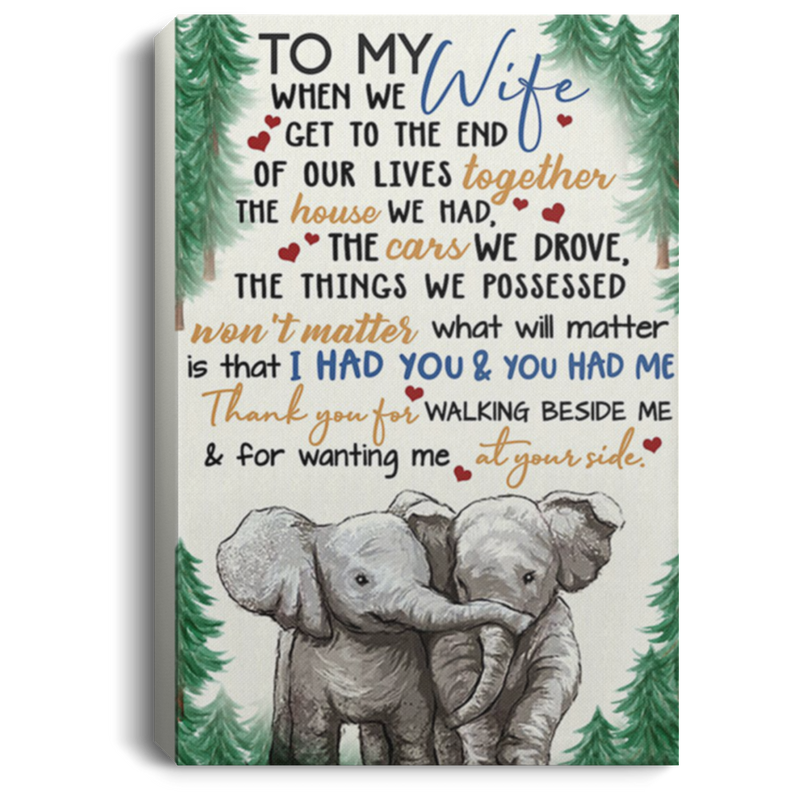 TO MY Wife
WHEN WE
GET TO THE END
OF OUR LIVES together
THE house WE HAD,
THE cars WE DROVE,
THE THINGS WE POSSESSED
won't matter what will matter
is that I HAD YOU & YOU HAD ME
Thank you for WALKING BESIDE ME
& for wanting me at your side.